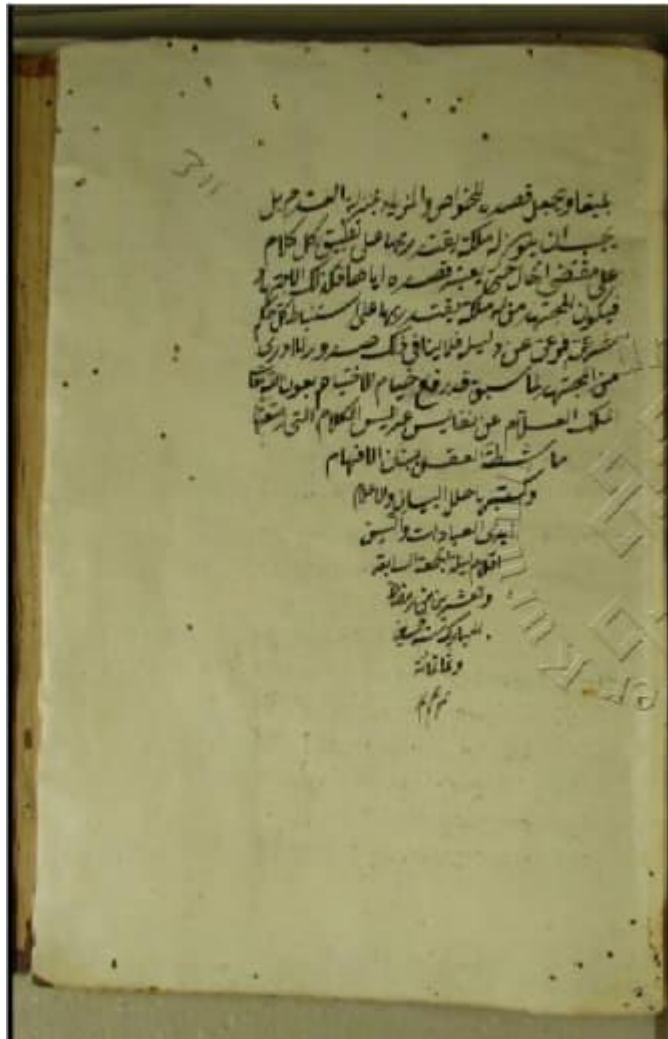 بليغا ويجعل قصده للخواص والمزايا بمنزلة العدم بل
يجب ان يكون له ملكة يقتدر بها على تطبيق كل كلام
على مقتضى الحال حتى يعتبر قصده اياها فكذلك الاجتهاد
فيكون المجتهد من له ملكة يقتدر بها على استنباط كل حكم
شرعى فرعى عن دليله فلا ينافى ذلك صدور لا ادرى
من المجتهد لما سبق قد رفع خيام الاختتام بعون الله
الملك العلام عن نفايس عرايس الكلام التى
ماشطة العقل ببنان الافهام
اهل البيان
العبادات
اقلام ليلة الجمعة السابعة
والعشرين من رمضان
المبارك سنة
وثمانمائة